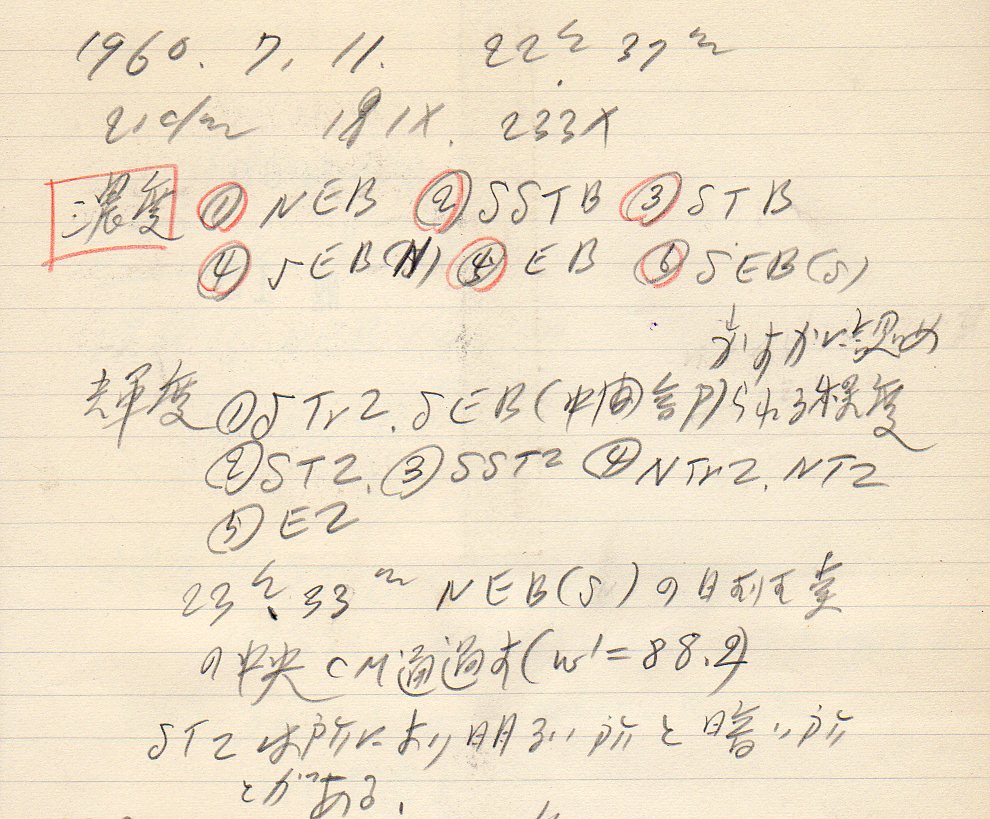 1960. 7. 11. 22h 37m
21cm 181X. 233X
濃度 ① NEB ② SSTB ③ STB
④ SEB(N) ⑤ EB ⑥ SEB(S)
↓
かすかに認め
輝度 ① STrZ. SEB(中間部) られる程度
② STZ. ③ SSTZ ④ NTrZ. NTZ
⑤ EZ
23h 33m NEB(S)の明
の中央CM通過す(w'=88.2)
STZは所により明るい所と暗い所
とがある.